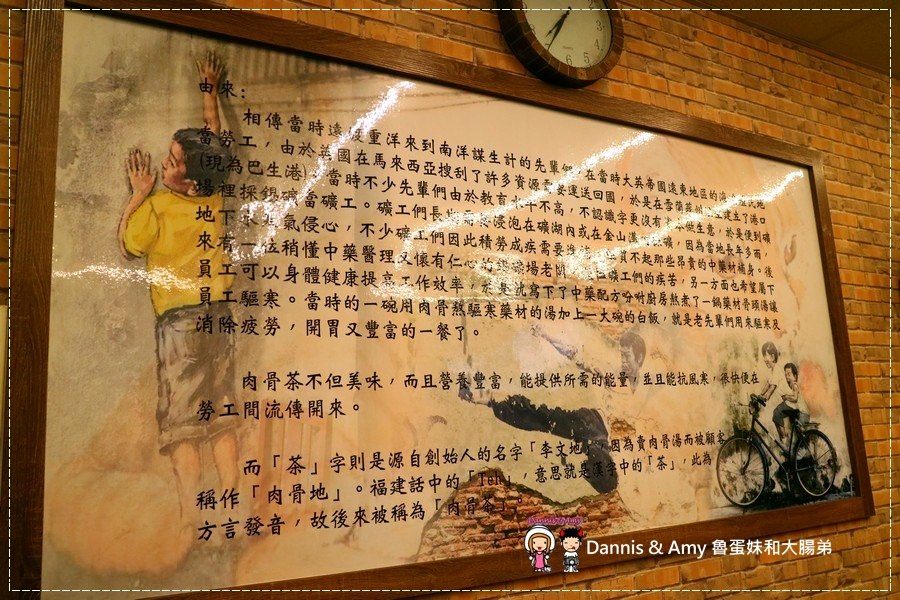 由來：
相傳當時遠渡重洋來到南洋謀生計的先輩們，在當時大英帝國遠東地區的
當勞工，由於英國在馬來西亞搜刮了許多資源需要運送回國，於是在 建立了港口
(現為巴生港)，當時不少先輩們由於教育水平不高，不認識字更沒有 做生意，於是便到礦
場裡採錫礦當礦工。礦工們長 浸泡在礦湖內或在金山溝 礦，因為當地長年多雨，
地下 氣侵心，不少礦工們因此積勞成疾需要進補 買不起那些昂貴的中藥材補身。後
來有一位稍懂中藥醫理又懷有仁心的 場老闆 礦工們的疾苦，另一方面也希望屬下
員工可以身體健康提高工作效率，於是就寫下了中藥配方吩咐廚房熬煮了一鍋藥材骨頭湯讓
員工驅寒。當時的一碗用肉骨熬驅寒藥材的湯加上一大碗的白飯，就是老先輩們用來驅寒及
消除疲勞，開胃又豐富的一餐了。
肉骨茶不但美味，而且營養豐富，能提供所需的能量，並且能抗風寒，很快便在
勞工間流傳開來。
而「茶」字則是源自創始人的名字「李文地」，因為賣肉骨湯而被顧客
稱作「肉骨地」。福建話中的「Teh」，意思就是漢字中的「茶」，此為
方言發音，故後來被稱為「肉骨茶」。
Dannis & Amy 魯蛋妹和大腸弟